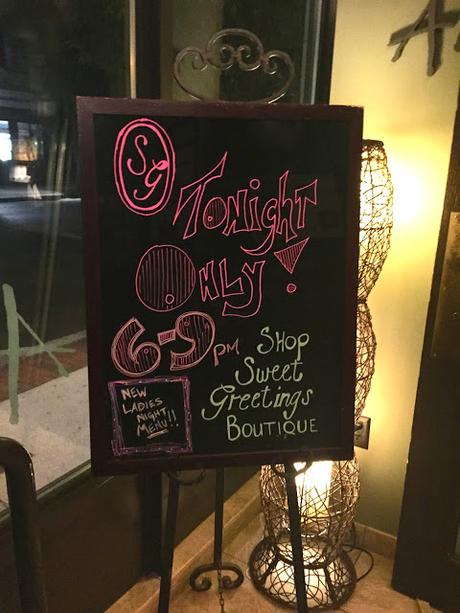 SG
Tonight
Only!
6-9 pm
Shop
Sweet
Greetings
Boutique
New
Ladies
Night
Menu!!